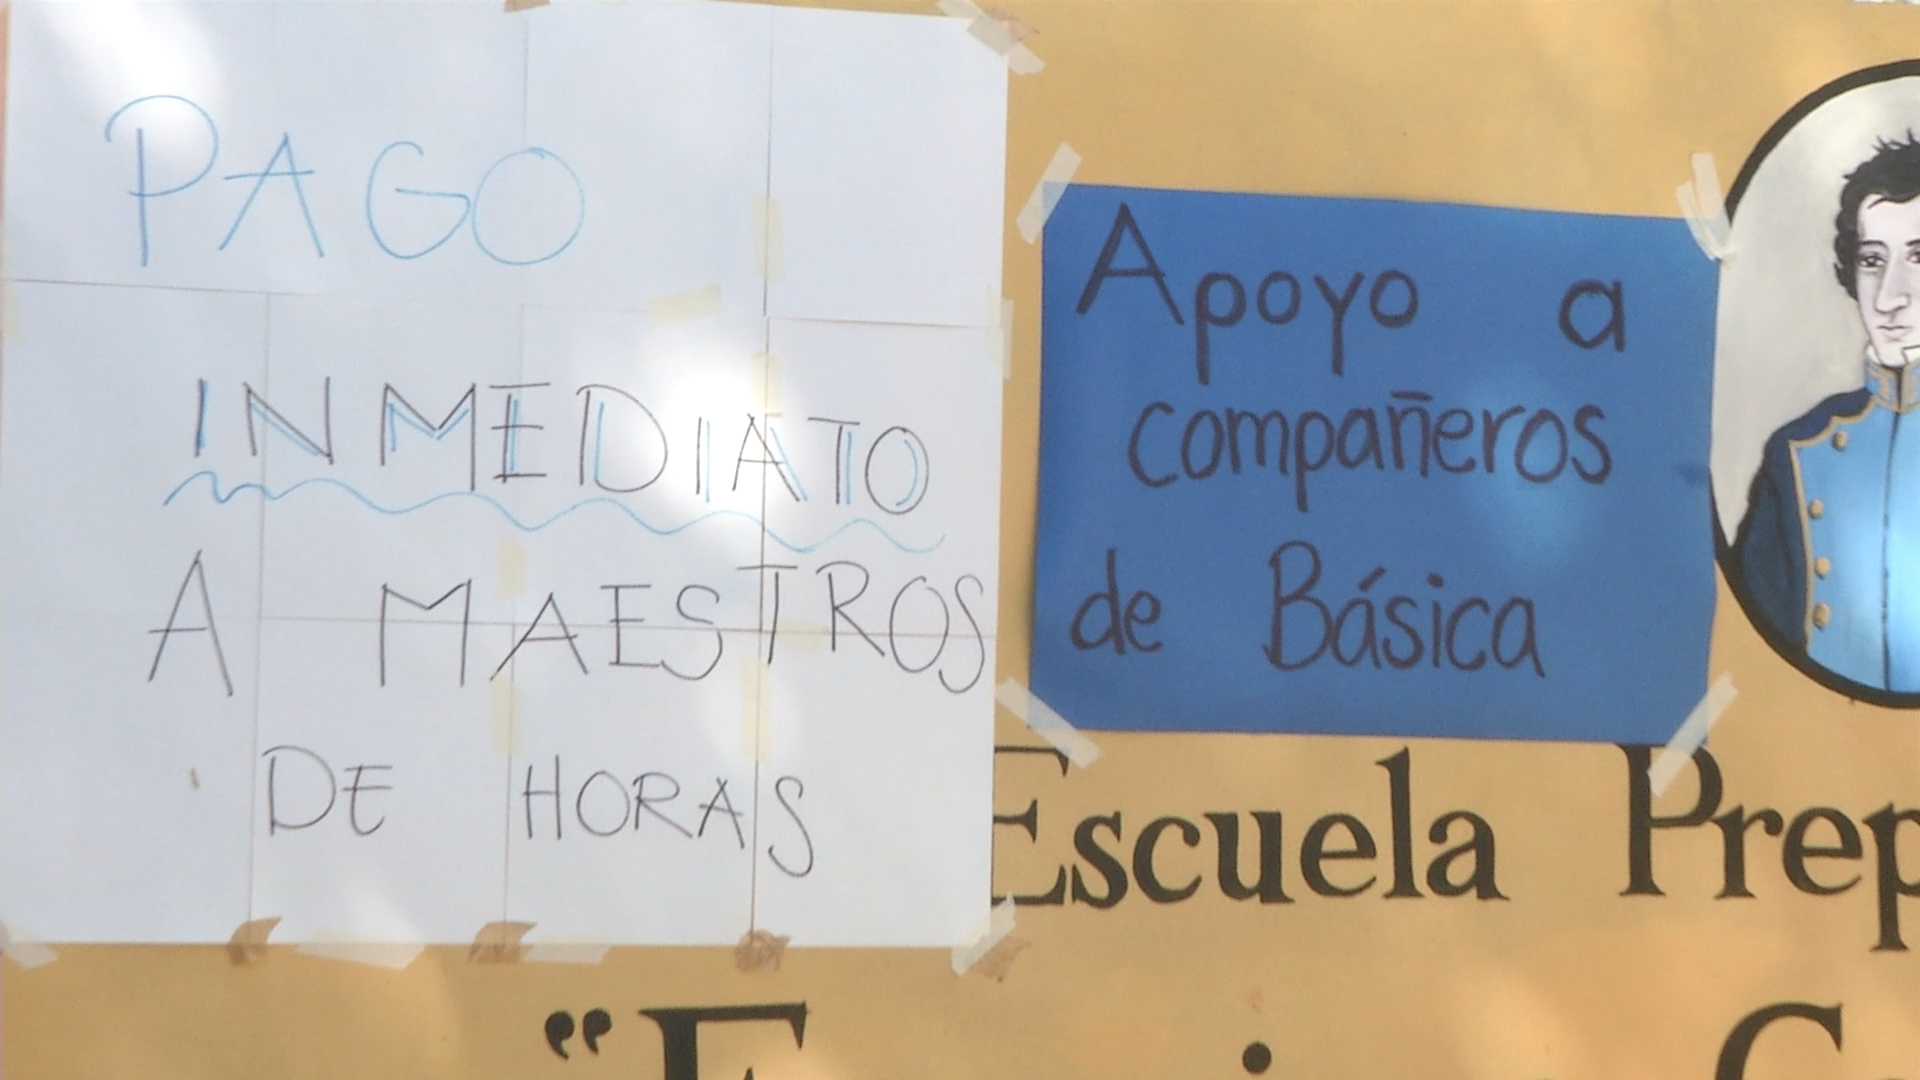 PAGO
INMEDIATO
A MAESTROS
DE HORAS
Apoyo a
compañeros
de Básica
Escuela Prep